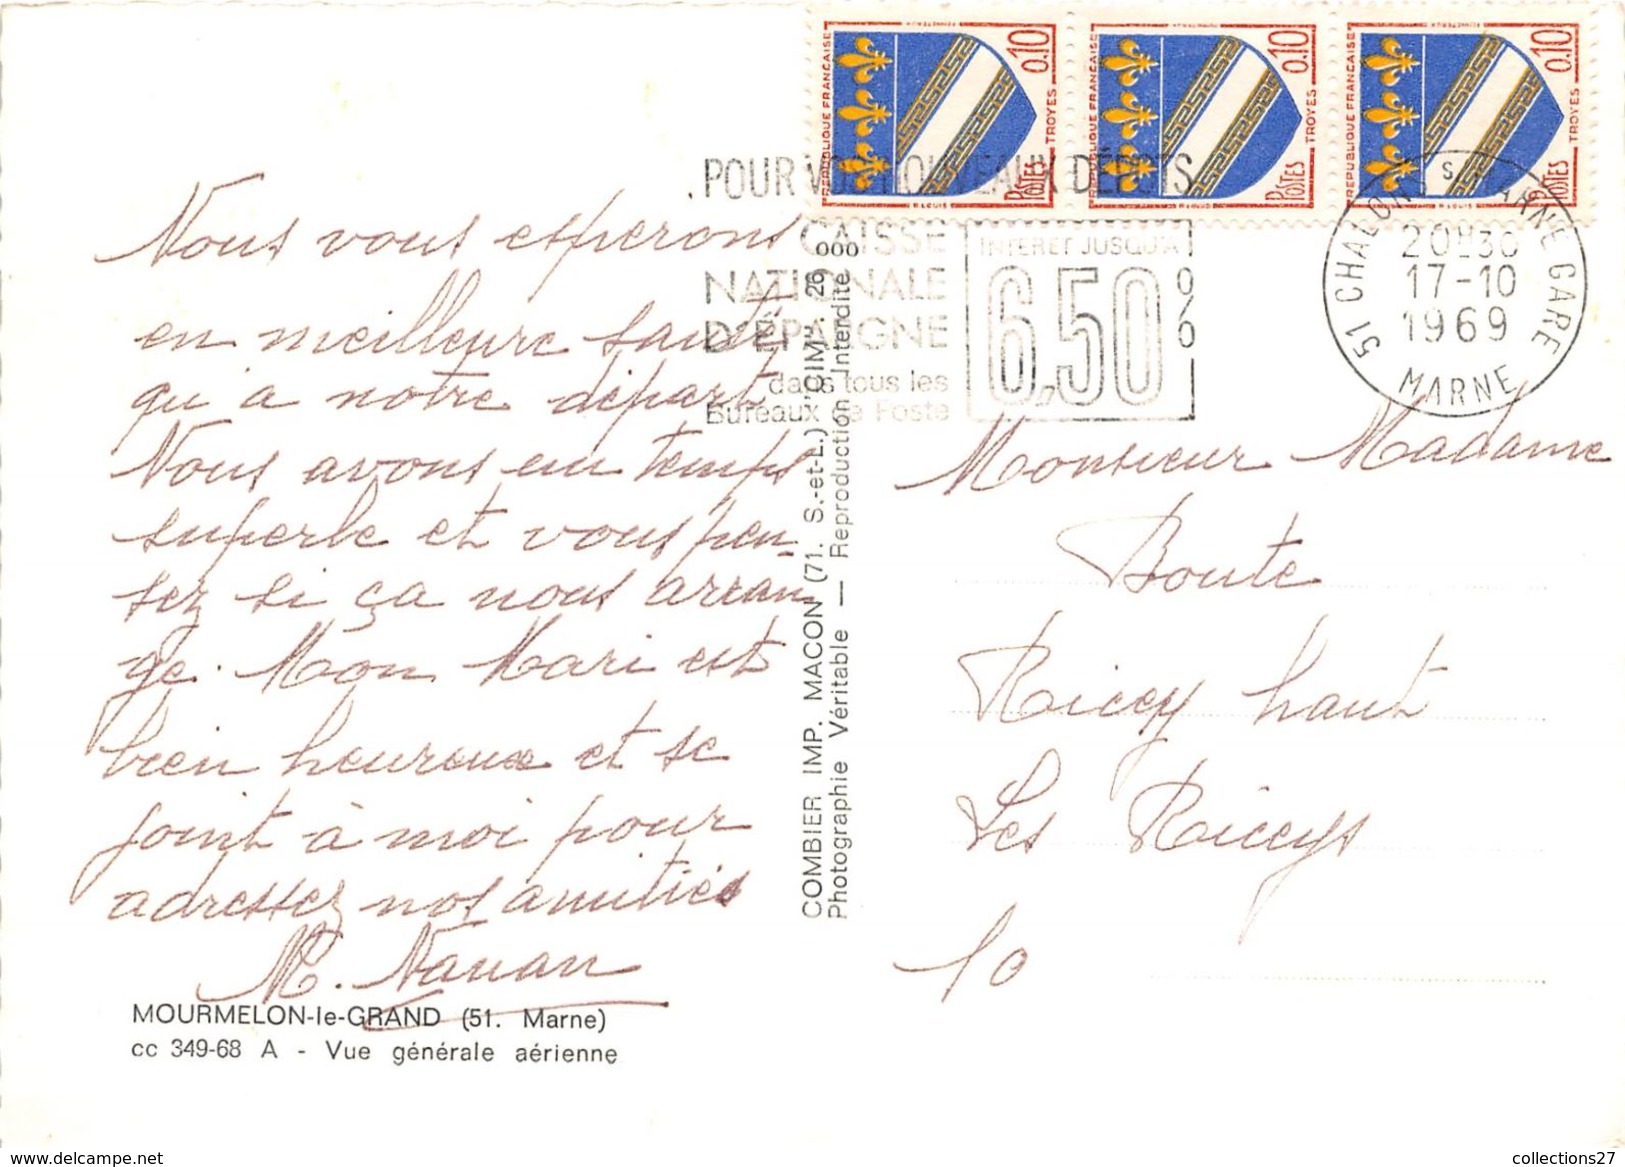 REPUBLIQUE FRANCAISE 0,10 TROYES POSTES
REPUBLIQUE FRANCAISE 0,10 TROYES POSTES
REPUBLIQUE FRANCAISE 0,10 TROYES POSTES
POUR VOS NOUVEAUX DÉPOTS
CAISSE
NATIONALE
D'ÉPARGNE
dans tous les
Bureaux de Poste
INTERET JUSQU'A
6,50%
51 CHALONS S. MARNE GARE
20H30
17-10
1969
MARNE
Nous vous esperons
en meilleure santé
qu'a notre depart
Nous avons un temps
superbe et vous pen-
sez si ça nous arran
ge. Mon Mari est
bien heureux et se
joint à moi pour
adresser nos amitiés
M.
MOURMELON-le-GRAND (51. Marne)
cc 349-68 A - Vue générale aérienne
COMBIER IMP. MACON (71. S.-et-L.) "CIM". 26 000
Photographie Véritable — Reproduction Interdite
Monsieur Madame
Boute
Ricey haut
Les Riceys
10
www.delcampe.net
collections27